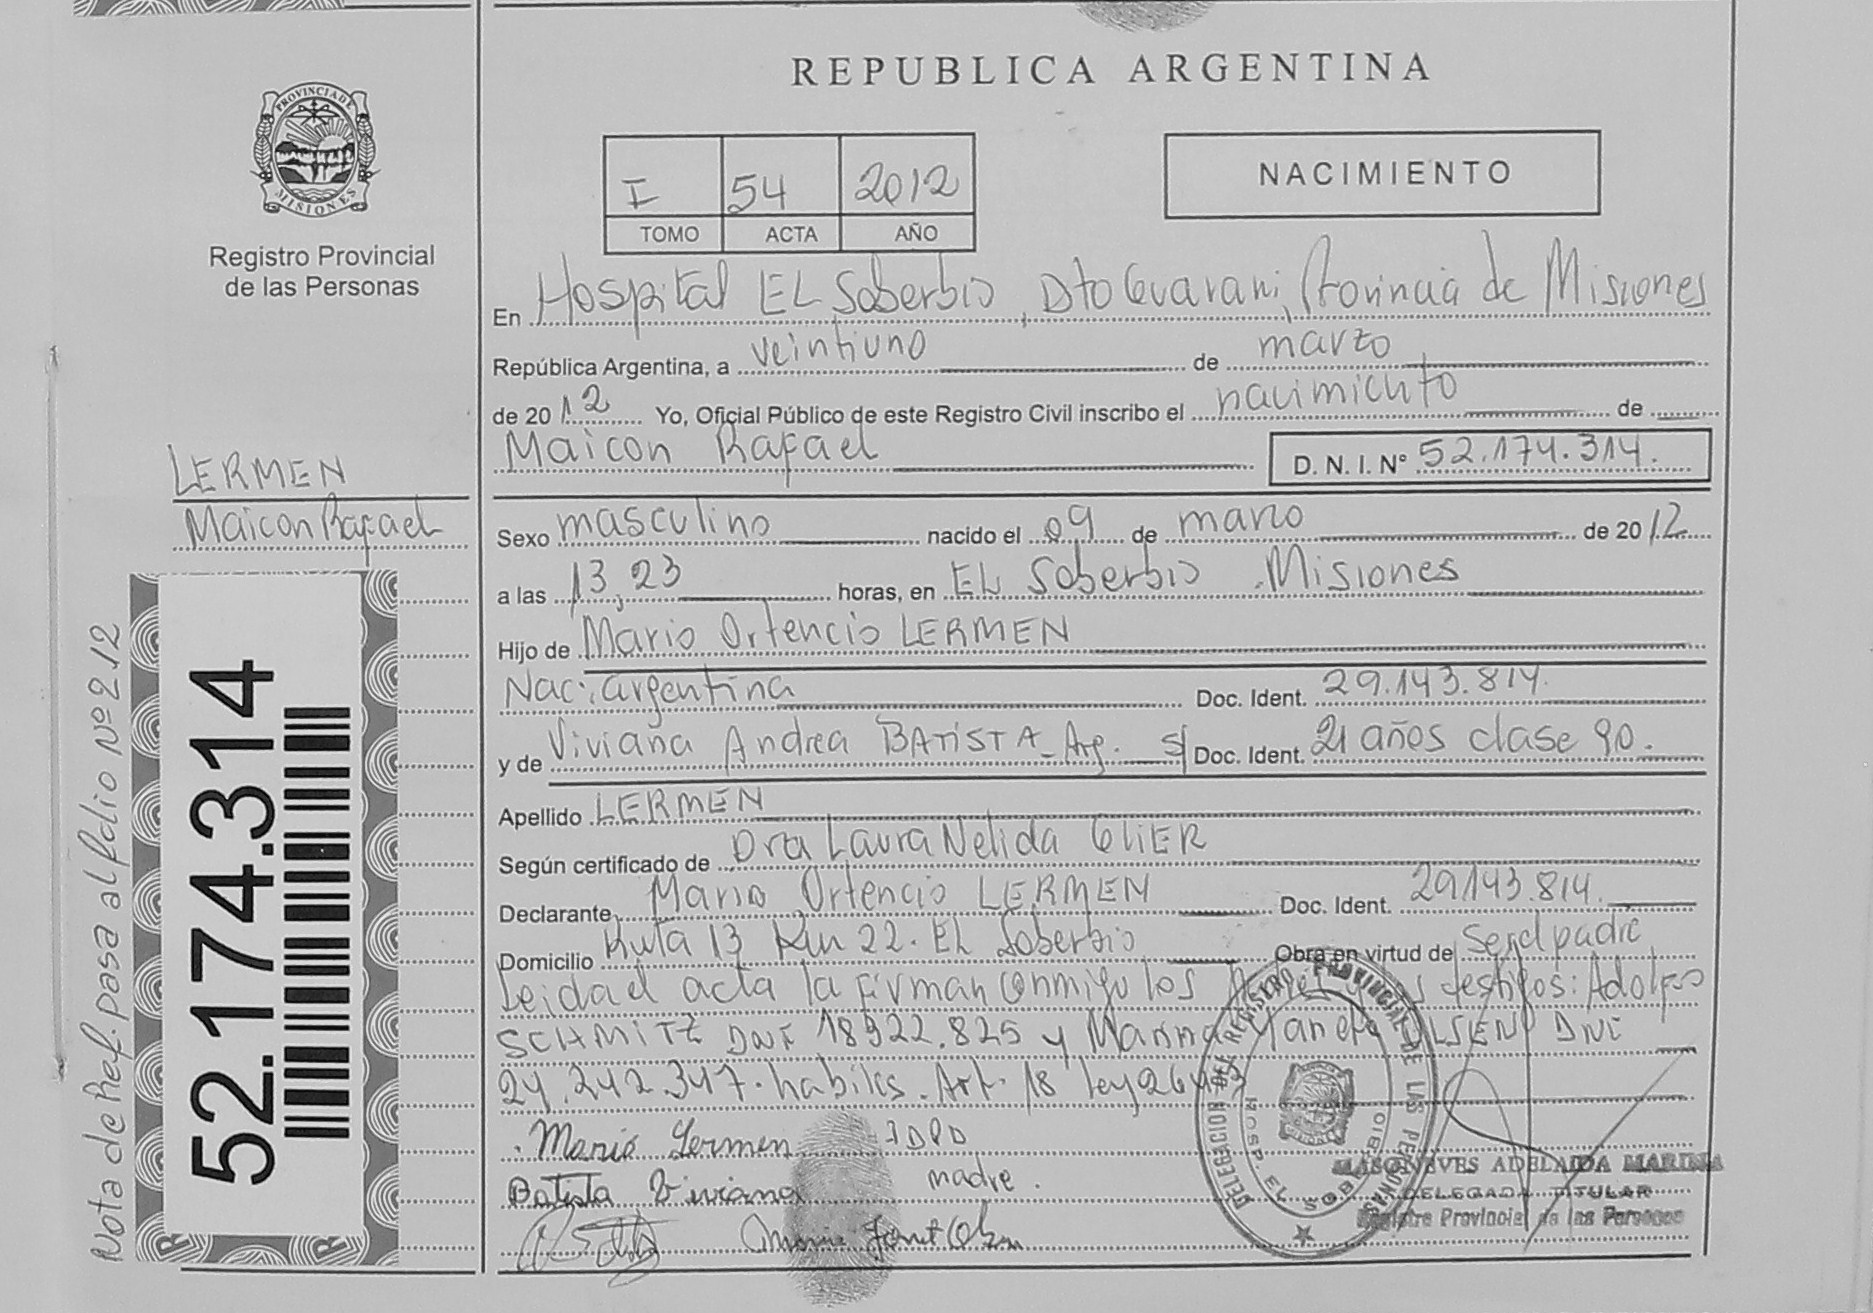 REPUBLICA ARGENTINA
PROVINCIA DE
MISIONES
Registro Provincial
de las Personas
I 54 2012
TOMO ACTA AÑO
NACIMIENTO
En Hospital EL Soberbio, Dto Guarani, Provincia de Misiones
República Argentina, a veintiuno de marzo
de 2012 Yo, Oficial Público de este Registro Civil inscribo el nacimiento de
Maicon Rafael D. N. I. Nº 52.174.314.
LERMEN
Maicon Rafael
Sexo masculino nacido el 09 de marzo de 2012
a las 13,23 horas, en EL Soberbio .Misiones
Hijo de Mario Ortencio LERMEN
Nac: argentina Doc. Ident. 29.143.814.
y de Viviana Andrea BATISTA - Arg. s/ Doc. Ident. 21 años clase 90.
Apellido LERMEN
Según certificado de Dra Laura Nelida GLIER
Declarante Mario Ortencio LERMEN Doc. Ident. 29143.814.
Domicilio Ruta 13 Km 22. EL Soberbio Obra en virtud de Ser el padre
Leida el acta la firman conmigo los testigos: Adolfo
SCHMITZ DNI 18922.825 y Marina OLSEN DNI
24.242.347. habiles. Art. 18 ley
Mario Lermen IDPD
Batista Viviana madre.
52.174.314
Nota de Ref. pasa al folio Nº 212
DELEGACION DEL REGISTRO PROVINCIAL DE LAS PERSONAS
HOSP. EL SOBERBIO
MASONEVES ADELAIDA MARINA
DELEGADA TITULAR
Registro Provincial de las Personas